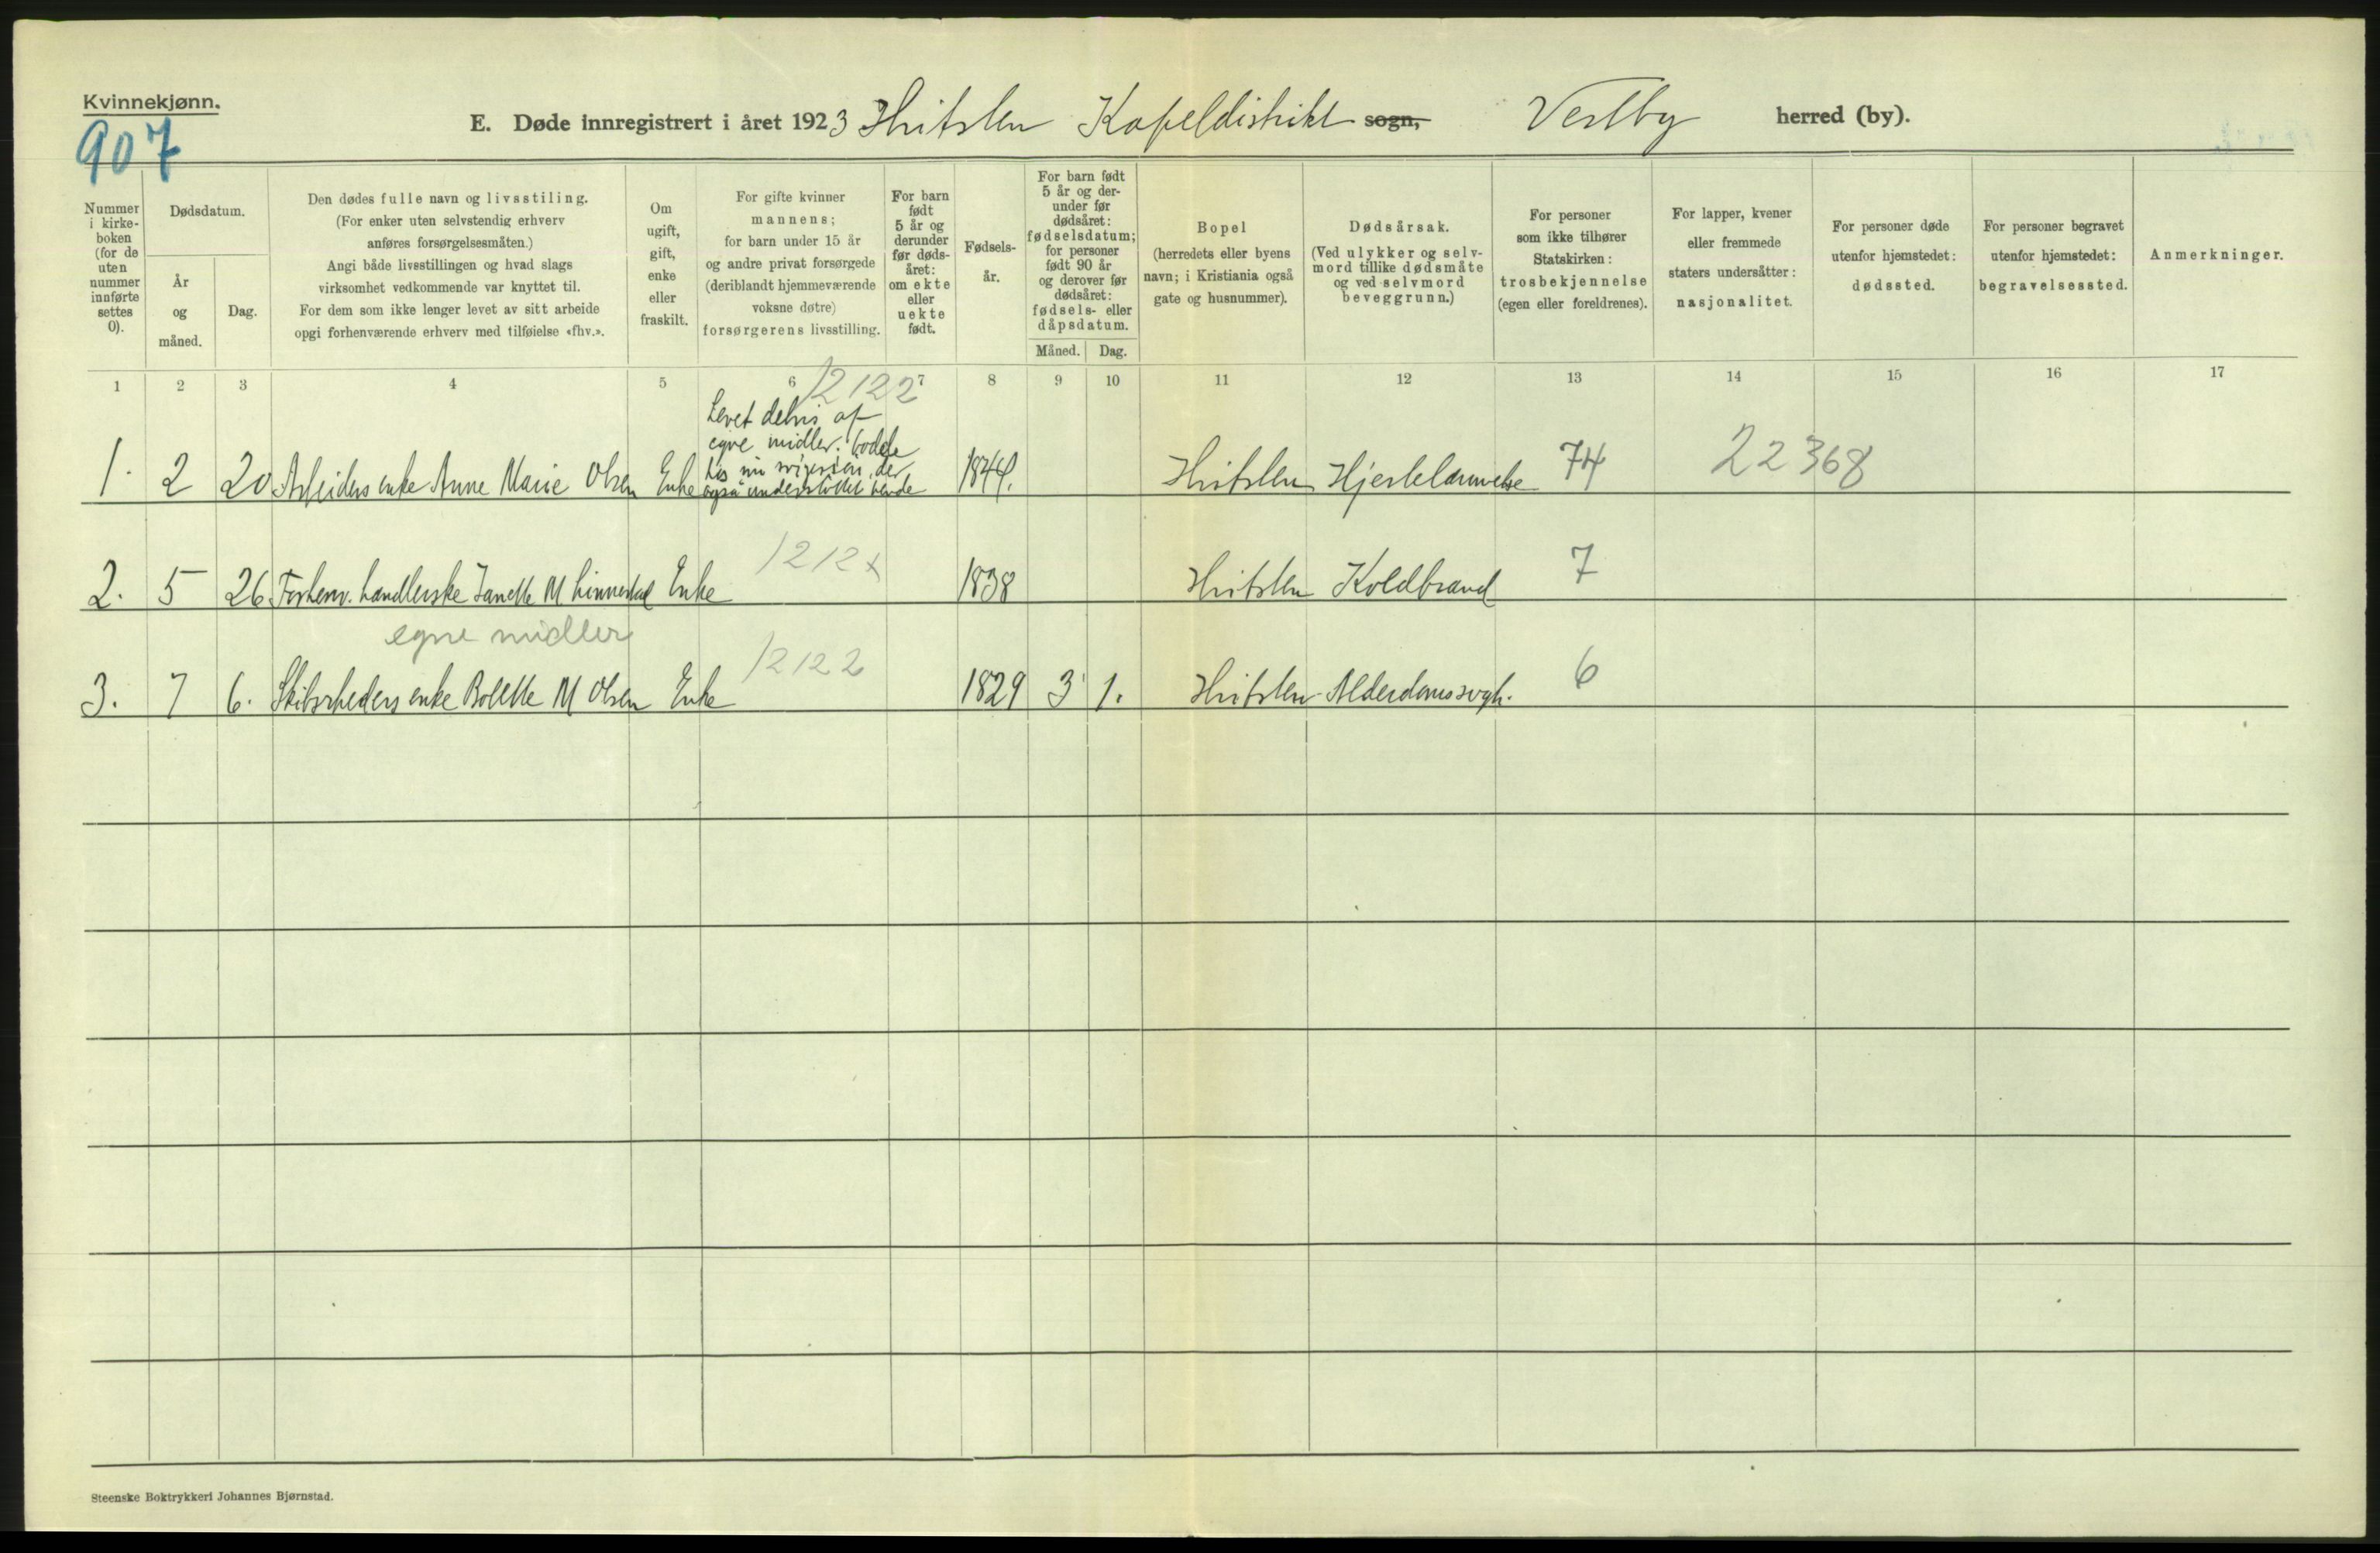 Kvinnekjønn.
907
E. Døde innregistrert i året 1923 Hvitsten Kapeldistrikt sogn, Vestby herred (by).
Nummer i kirke- boken (for de uten nummer innførte settes 0).
Dødsdatum.
År og måned.
Dag.
Den dødes fulle navn og livsstiling.
(For enker uten selvstendig erhverv
anføres forsørgelsesmåten.)
Angi både livsstillingen og hvad slags
virksomhet vedkommende var knyttet til.
For dem som ikke lenger levet av sitt arbeide
opgi forhenværende erhverv med tilføielse «fhv.».
Om ugift, gift, enke eller fraskilt.
For gifte kvinner
mannens;
for barn under 15 år
og andre privat forsørgede
(deriblandt hjemmeværende
voksne døtre)
forsørgerens livsstilling.
For barn født 5 år og derunder før døds- året: om ekte eller uekte født.
Fødsels- år.
For barn født 5 år og der- under før dødsåret: fødselsdatum; for personer født 90 år og derover før dødsåret: fødsels- eller dåpsdatum.
Måned. Dag.
Bopel
(herredets eller byens
navn; i Kristiania også
gate og husnummer).
Dødsårsak.
(Ved ulykker og selv-
mord tillike dødsmåte
og ved selvmord
beveggrunn.)
For personer
som ikke tilhører
Statskirken:
trosbekjennelse
(egen eller foreldrenes).
For lapper, kvener
eller fremmede
staters undersåtter:
nasjonalitet.
For personer døde
utenfor hjemstedet:
dødssted.
For personer begravet
utenfor hjemstedet:
begravelsessted.
Anmerkninger.
1 2 3 4 5 6 7 8 9 10 11 12 13 14 15 16 17
12122
Levet delvis af
egne midler. bodde
hos sin svigersøn, der
også understøttet hende
1. 2 20 Arbeiders enke Anne Marie Olsen Enke 1844. Hvitsten Hjertelammelse 74 22368
2. 5 26 Forhenv. handlerske Janette M Enke 1212x 1838 Hvitsten Koldbrand 7
egne midler
3. 7 6. Skibsrheders enke Bolette M Olsen Enke 12122 1829 3 1. Hvitsten Alderdomssvgh. 6
Steenske Boktrykkeri Johannes Bjørnstad.